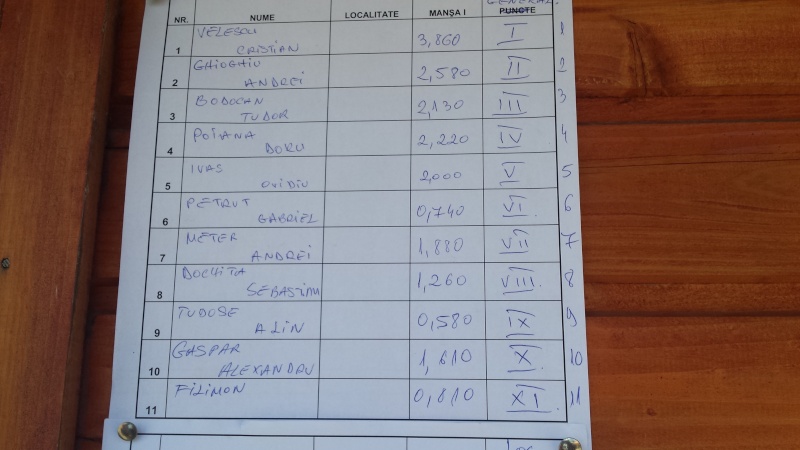 GENERAL
NR. NUME LOCALITATE MANȘA I PUNCTE
VELESCU
1 CRISTIAN 3,860 I 1
GHIOGHIU
2 ANDREI 2,580 II 2
BODOCAN
3 TUDOR 2,130 III 3
POIANA
4 DORU 2,220 IV 4
IVAS
5 OVIDIU 2,000 V 5
PETRUT
6 GABRIEL 0,740 VI. 6
METER
7 ANDREI 1,880 VII 7
DOCHITA
8 SEBASTIAN 1,260 VIII. 8
TUDOSE
9 ALIN 0,580 IX 9
GASPAR
10 ALEXANDRU 1,610 X. 10
FILIMON
11 0,810 XI. 11